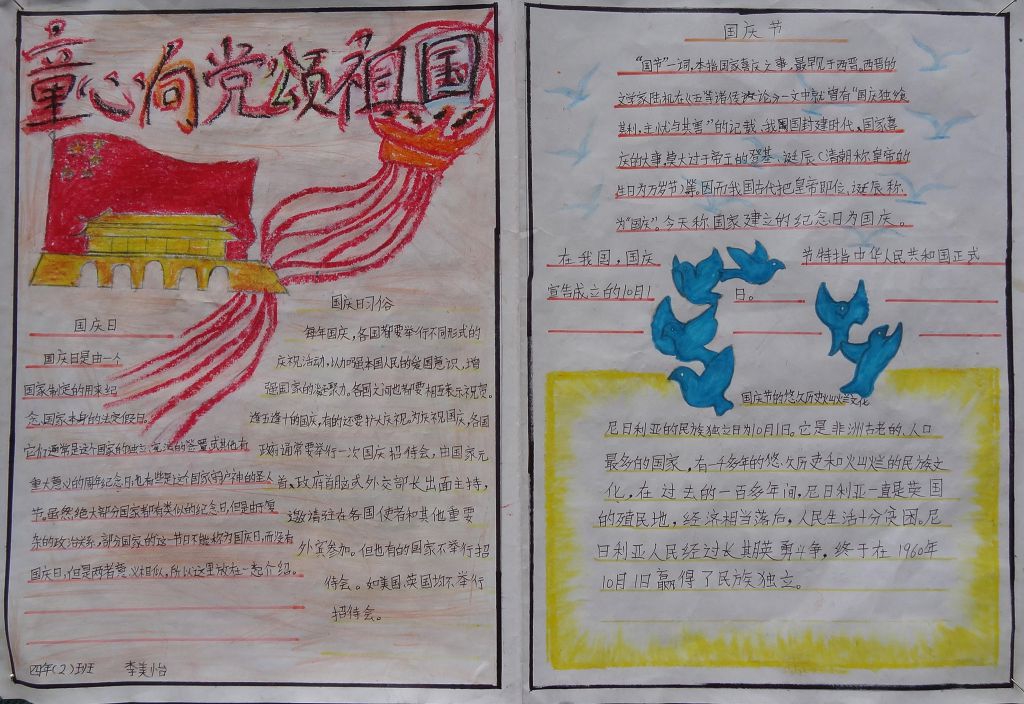 童心向党颂祖国
国庆日
国庆日是由一个
国家制定的用来纪
念国家本身的法定假日。
它们通常是这个国家的独立、宪法的签署,或其他有
重大意义的周年纪念日;也有些是这个国家守护神的圣人
节。虽然绝大部分国家都有类似的纪念日,但是由于复
杂的政治关系,部分国家的这一节日不能称为国庆日,而没有
国庆日,但是两者意义相似,所以这里放在一起介绍。
四年(2)班 李美怡
国庆日习俗
每年国庆,各国都要举行不同形式的
庆祝活动,以加强本国人民的爱国意识,增
强国家的凝聚力。各国之间也都要相互表示祝贺。
逢五逢十的国庆,有的还要扩大庆祝。为庆祝国庆,各国
政府通常要举行一次国庆招待会,由国家元
首、政府首脑或外交部长出面主持,
邀请驻在各国使者和其他重要
外宾参加。但也有的国家不举行招
待会。如美国、英国均不举行
招待会。
国庆节
“国节”一词,本指国家喜庆之事,最早见于西晋。西晋的
文学家陆机在《五等诸侯论》一文中就曾有“国庆独飨
其利,主忧与其害”的记载、我国封建时代、国家喜
庆的大事,莫大过于帝王的登基、诞辰(清朝称皇帝的
生日为万岁节)等。因而我国古代把皇帝即位、诞辰称
为“国庆”。今天称国家建立的纪念日为国庆。
在我国,国庆节特指中华人民共和国正式
宣告成立的10月1日。
国庆节的悠久历史灿烂文化
尼日利亚的民族独立日为10月1日。它是非洲古老的、人口
最多的国家,有一千多年的悠久历史和灿烂的民族文
化,在过去的一百多年间,尼日利亚一直是英国
的殖民地,经济相当落后,人民生活十分贫困。尼
日利亚人民经过长期英勇斗争,终于在1960年
10月1日赢得了民族独立。